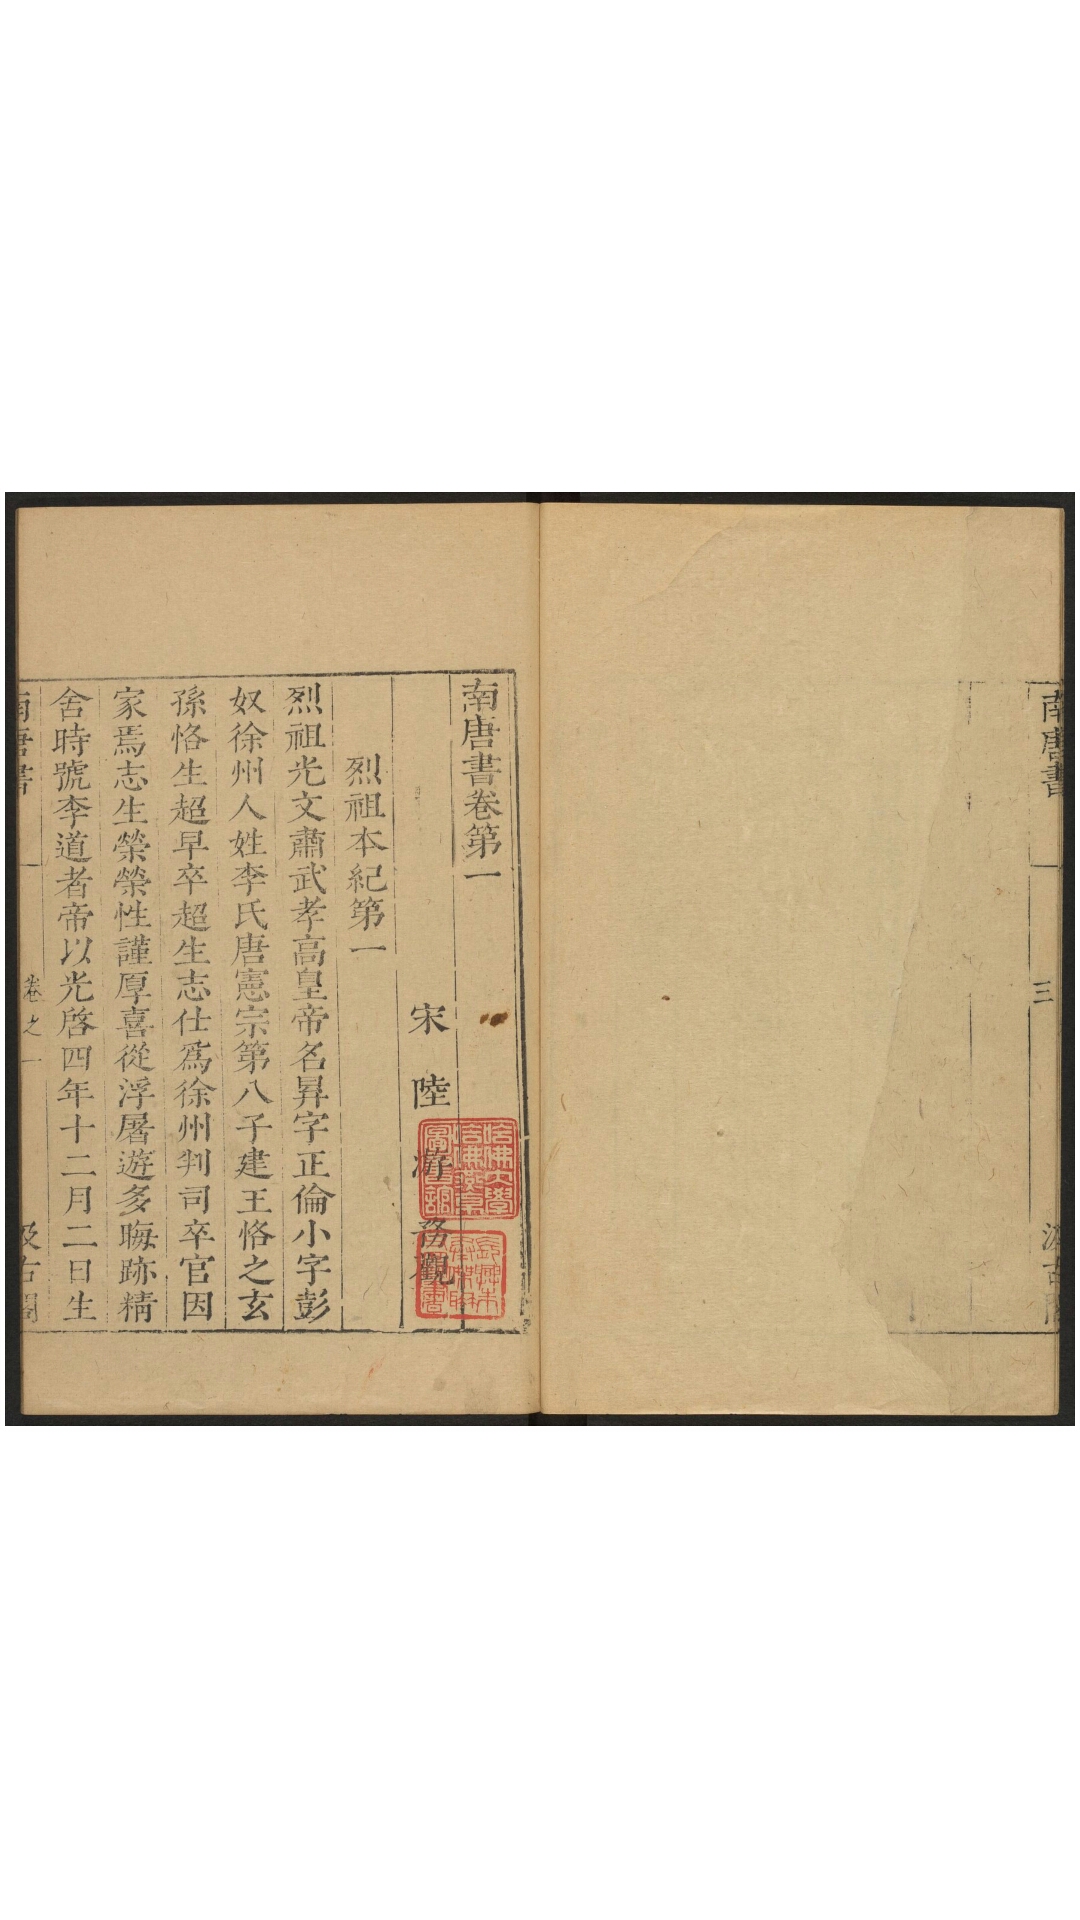 南唐書
三
汲古閣
南唐書卷第一
宋 陸 游 務觀
烈祖本紀第一
烈祖光文肅武孝高皇帝名昇字正倫小字彭
奴徐州人姓李氏唐憲宗第八子建王恪之玄
孫恪生超早卒超生志仕爲徐州判司卒官因
家焉志生榮榮性謹厚喜從浮屠遊多晦跡精
舍時號李道者帝以光啓四年十二月二日生
南唐書
卷之一
汲古閣
哈佛大學
哈佛燕京
圖書館